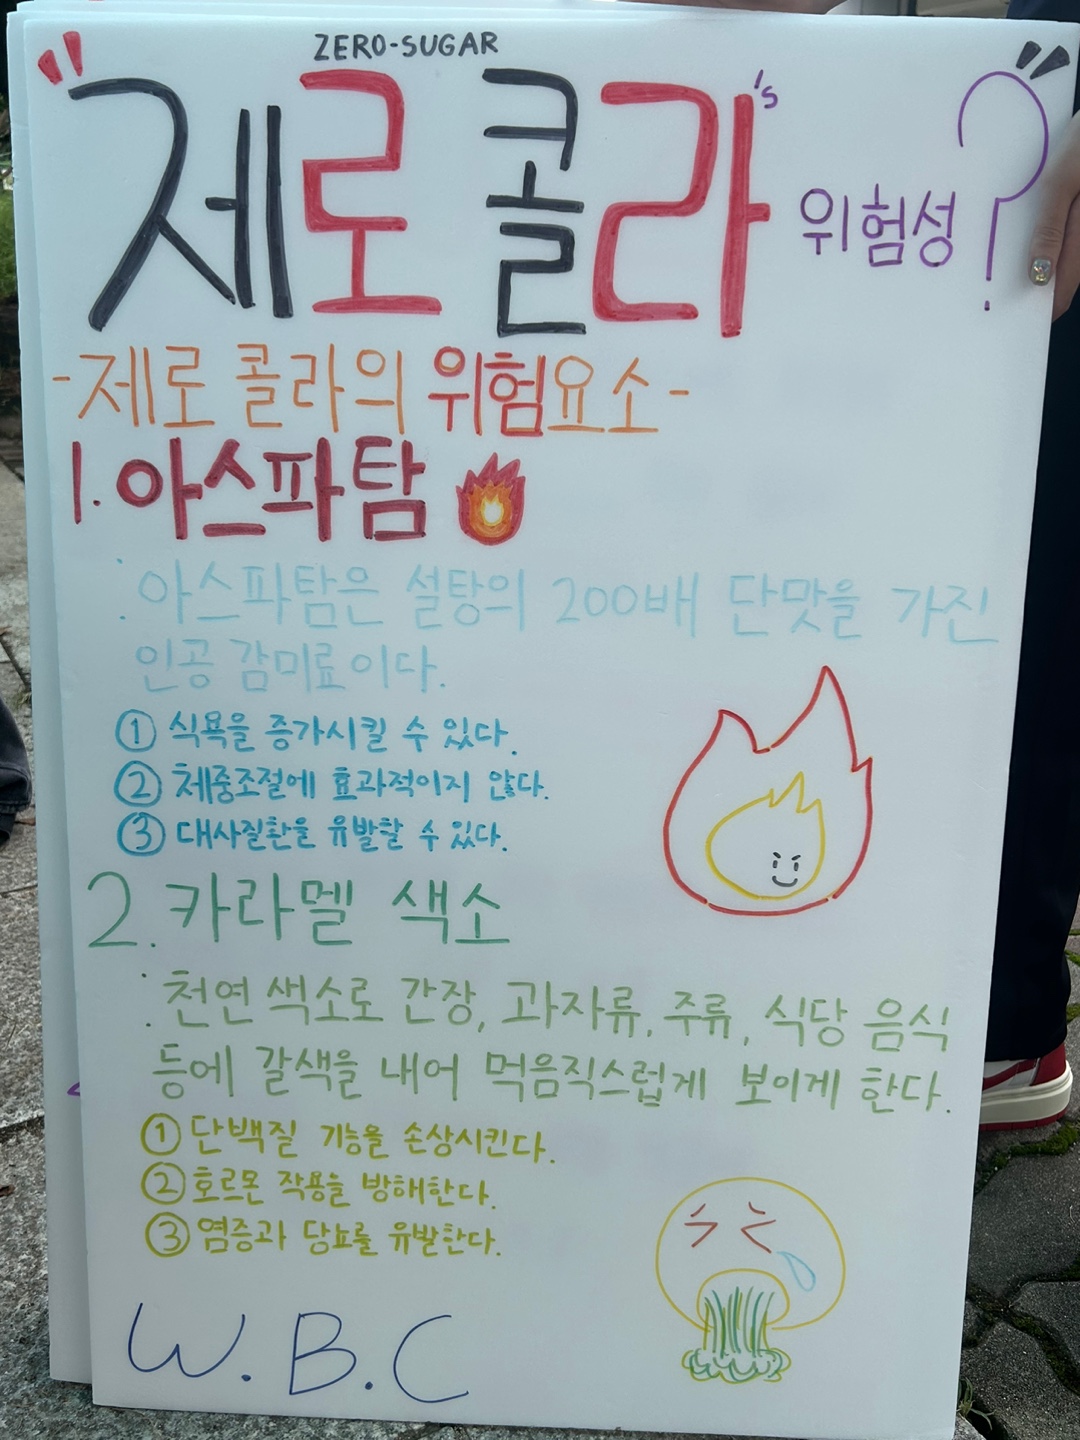 ZERO-SUGAR
"제로 콜라's 위험성?"
-제로 콜라의 위험요소-
1. 아스파탐
: 아스파탐은 설탕의 200배 단맛을 가진
인공 감미료이다.
① 식욕을 증가시킬 수 있다.
② 체중조절에 효과적이지 않다.
③ 대사질환을 유발할 수 있다.
2. 카라멜 색소
: 천연 색소로 간장, 과자류, 주류, 식당 음식
등에 갈색을 내어 먹음직스럽게 보이게 한다.
① 단백질 기능을 손상시킨다.
② 호르몬 작용을 방해한다.
③ 염증과 당뇨를 유발한다.
W.B.C